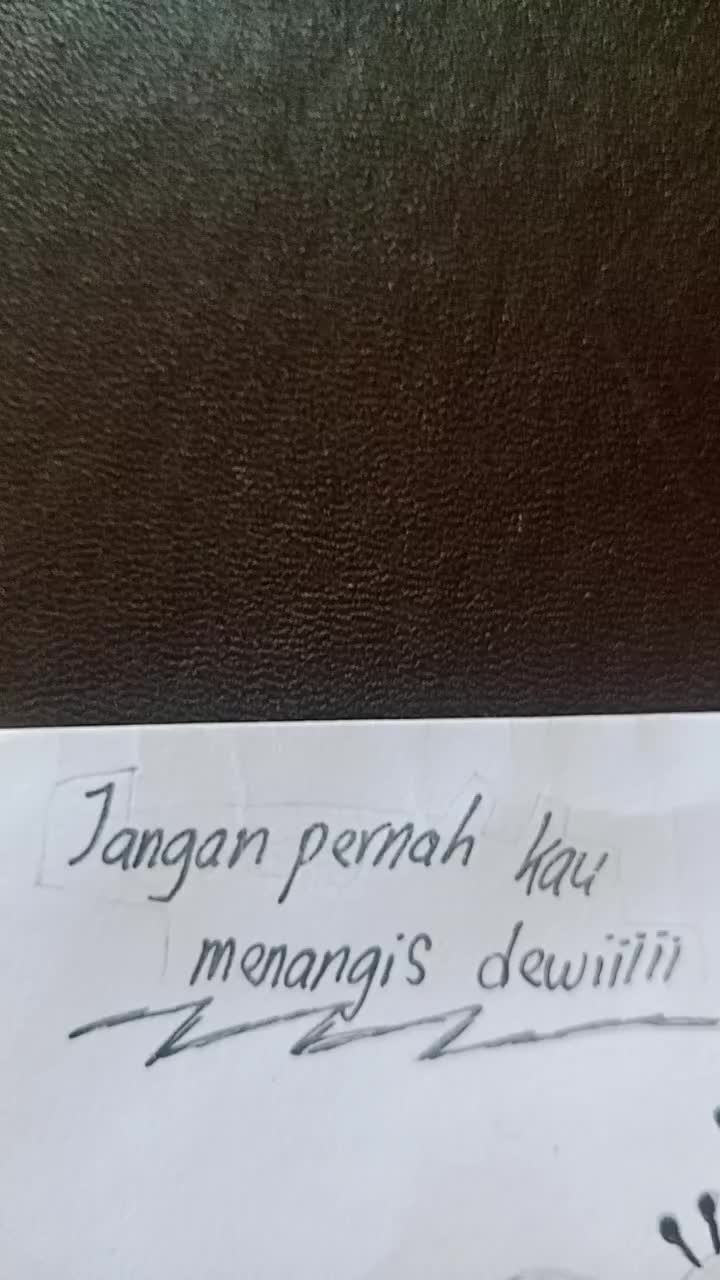 Jangan pernah kau
menangis dewiiiiii